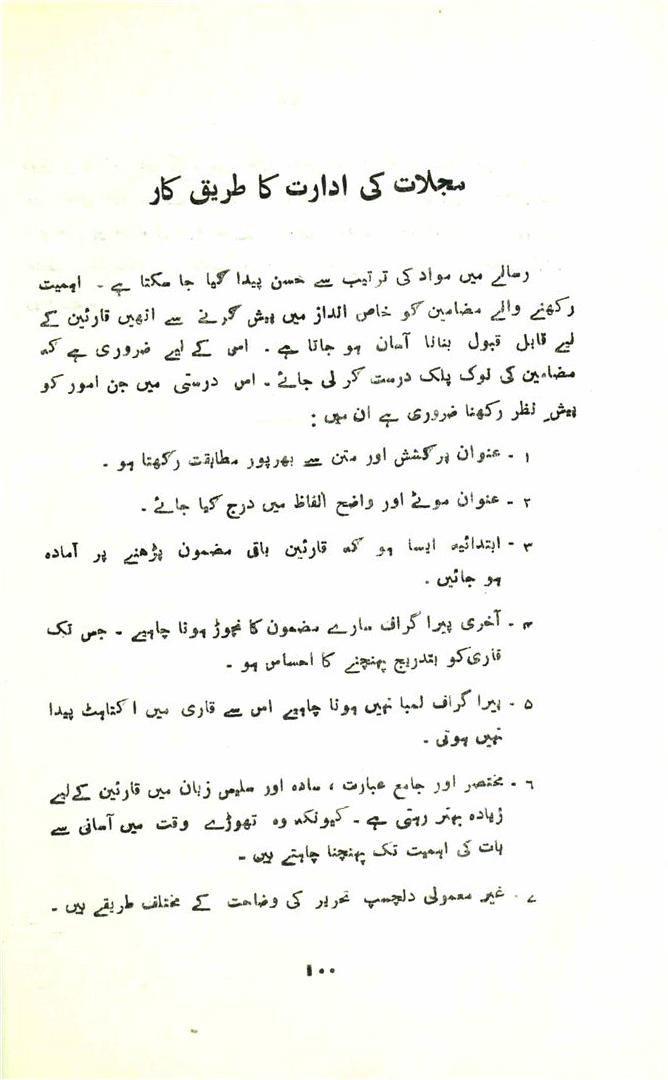 مجلات کی ادارت کا طریق کار
رسالے میں مواد کی ترتیب سے حسن پیدا کیا جا سکتا ہے ۔ اہمیت
رکھنے والے مضامین کو خاص انداز میں پیش کرنے سے انھیں قارئین کے
لیے قابل قبول بنانا آسان ہو جاتا ہے ۔ اس کے لیے ضروری ہے کہ
مضامین کی نوک پلک درست کر لی جائے ۔ اس درستی میں جن امور کو
پیش نظر رکھنا ضروری ہے ان میں :
۱ ۔ عنوان پرکشش اور متن سے بھرپور مطابقت رکھتا ہو ۔
۲ ۔ عنوان موٹے اور واضح الفاظ میں درج کیا جائے ۔
۳ ۔ ابتدائیہ ایسا ہو کہ قارئین باقی مضمون پڑھنے پر آمادہ
ہو جائیں ۔
۴ ۔ آخری پیرا گراف سارے مضمون کا نچوڑ ہونا چاہیے ۔ جس تک
قاری کو بتدریج پہنچنے کا احساس ہو ۔
۵ ۔ پیرا گراف لمبا نہیں ہونا چاہیے اس سے قاری میں اکتاہٹ پیدا
نہیں ہوتی ۔
۶ ۔ مختصر اور جامع عبارت ، سادہ اور سلیس زبان میں قارئین کے لیے
زیادہ بہتر رہتی ہے ۔ کیونکہ وہ تھوڑے وقت میں آسانی سے
بات کی اہمیت تک پہنچنا چاہتے ہیں ۔
۷ ۔ غیر معمولی دلچسپ تحریر کی وضاحت کے مختلف طریقے ہیں ۔
۱۰۰